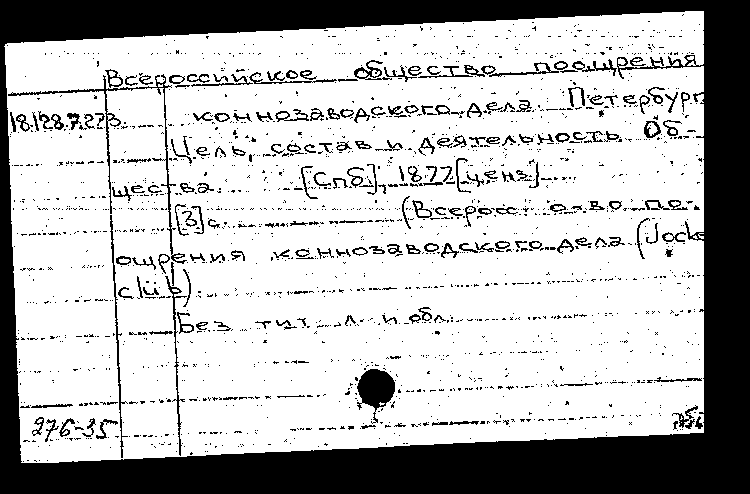 Всероссийское общество поощрения
18.128.7.273. коннозаводского дела. Петербург.
Цель, состав и деятельность Об-
щества. [Спб], 1872 [ценз]
[3] с. (Всеросс. о-во по-
ощрения коннозаводского дела (Jocke
club).
Без тит. л. и обл.
276-35